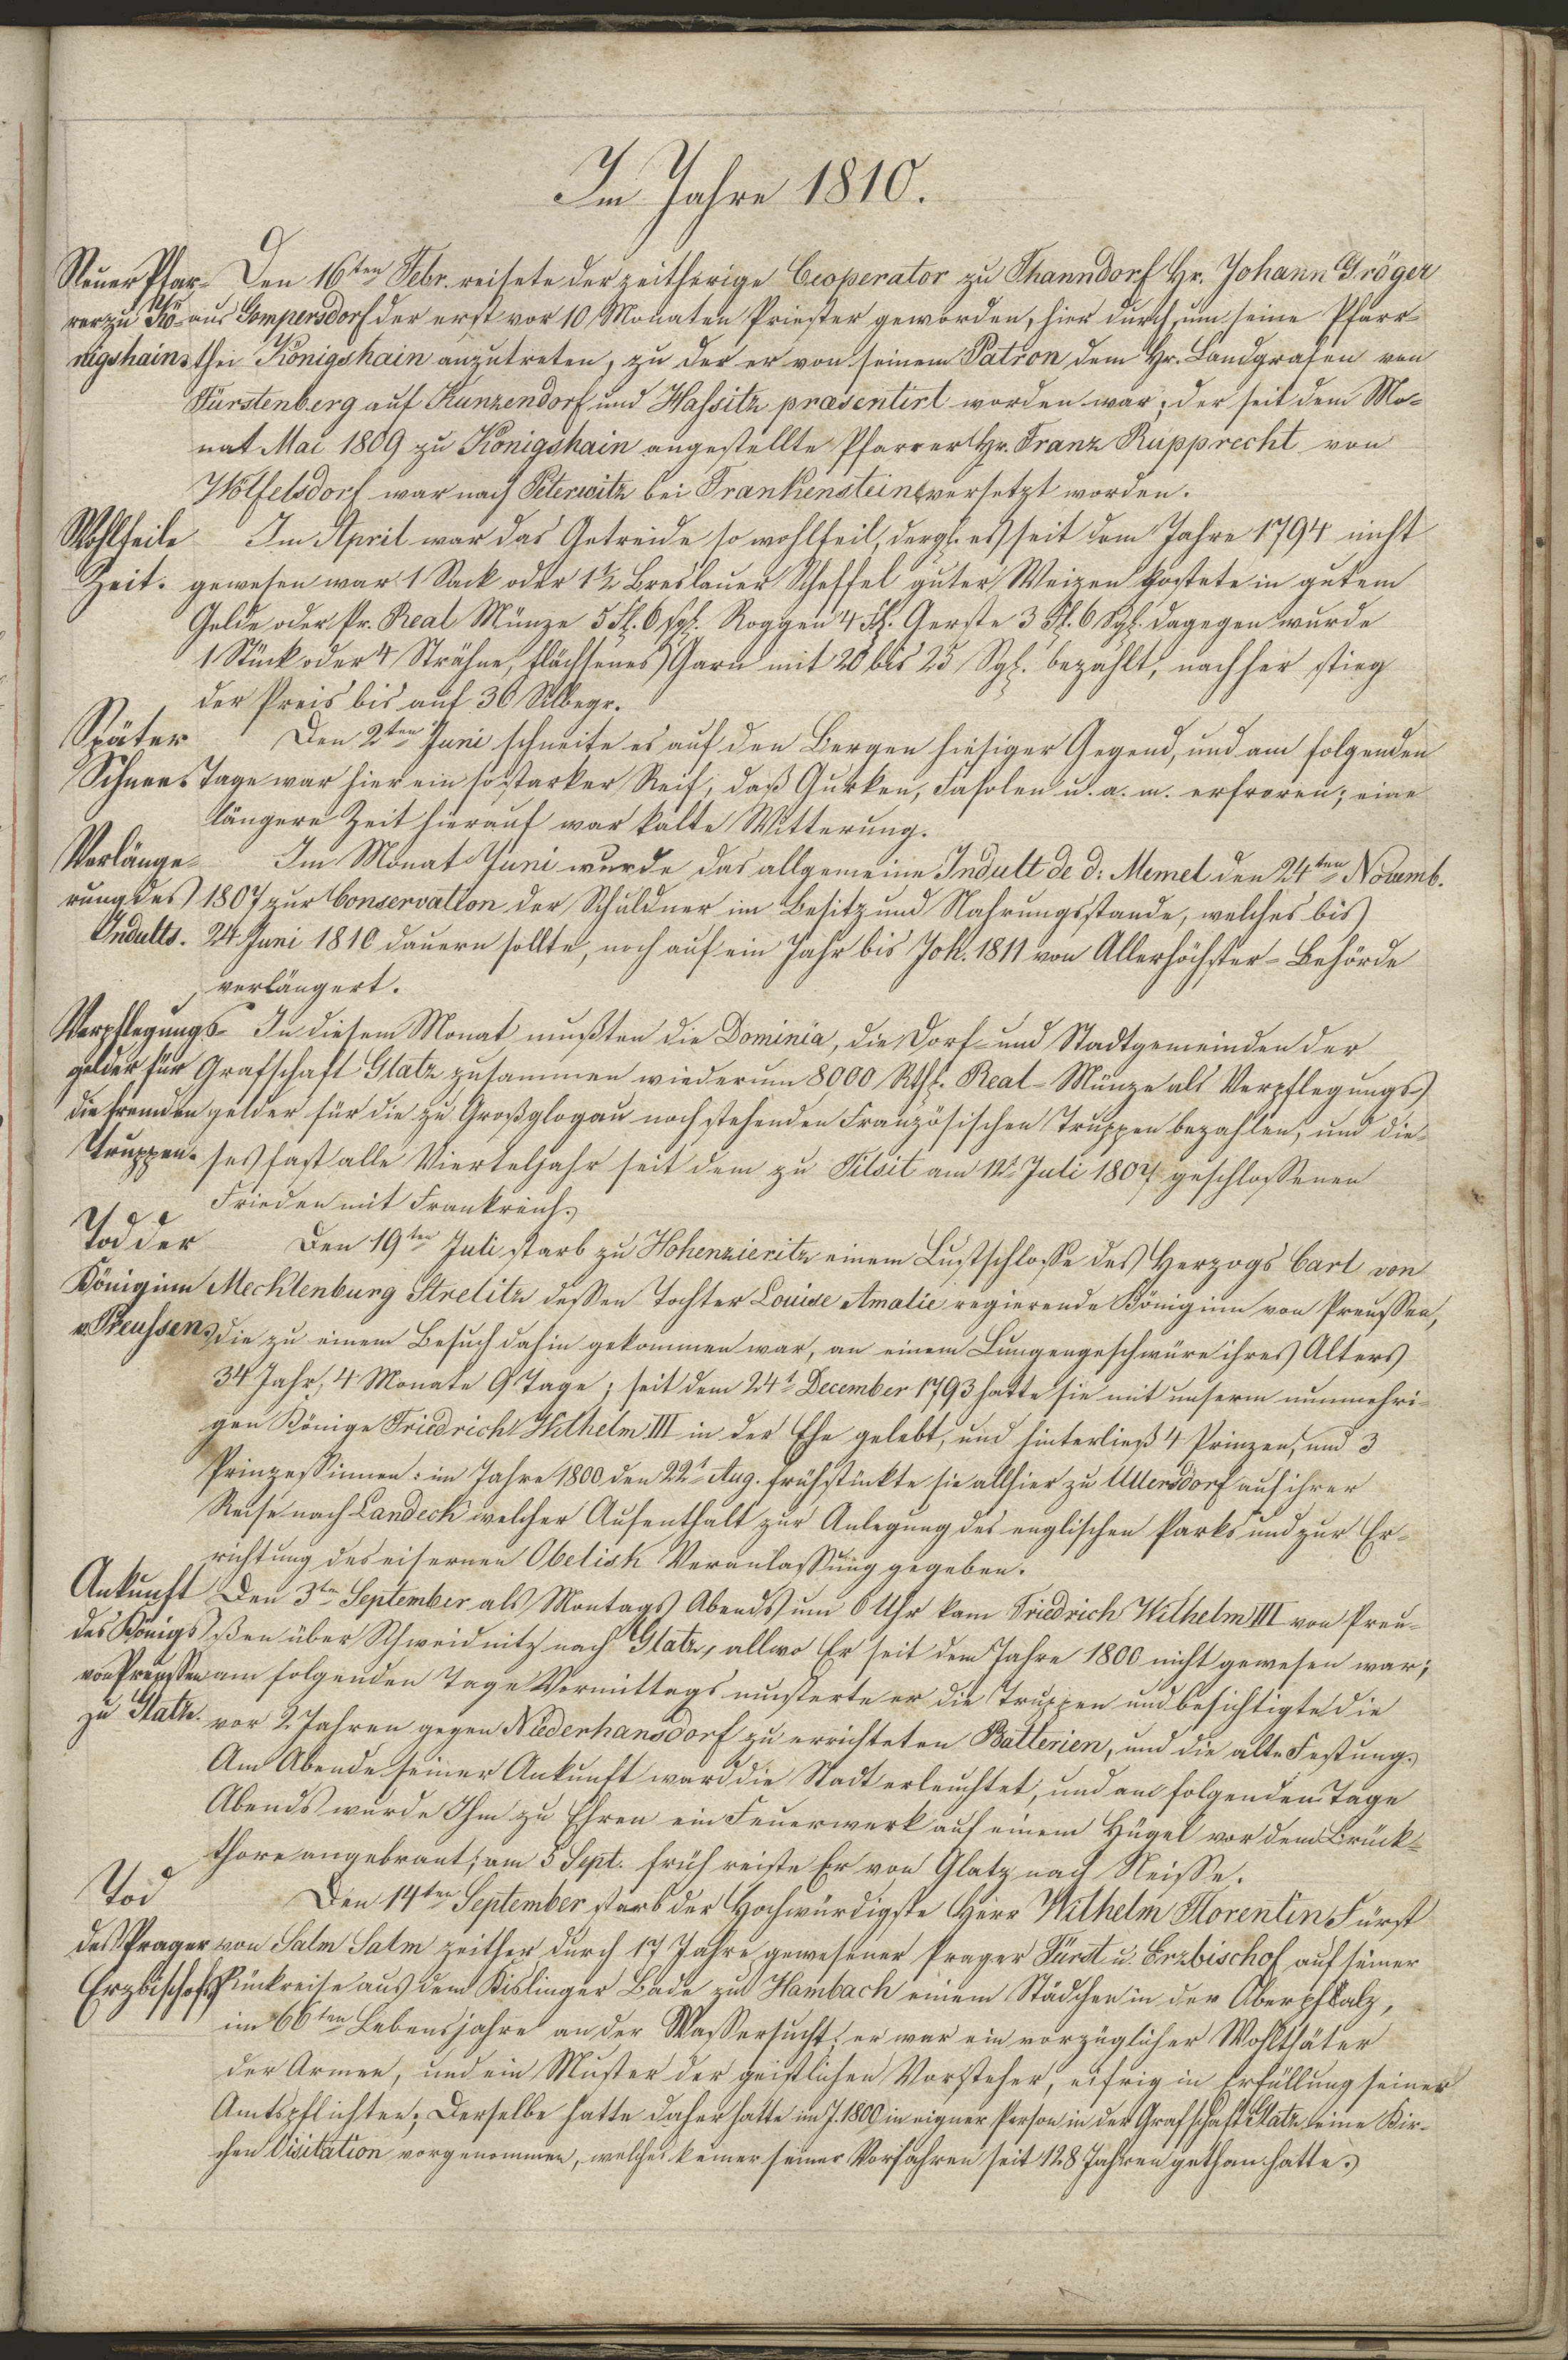 Im Jahre 1810.
Neuer Pfar- Den 16ten Febr. reisete der zeitherige Cooperator zu Thanndorf Hr. Johann Gröger
rer zu Kö- aus Gompersdorf der erst vor 10 Monaten Priester geworden, hier durch, um seine Pfarr-
nigshain. thei Königshain anzutreten, zu der er von seinem Patron dem Hr. Landgrafen von
Fürstenberg auf Kunzendorf und Hassitz praesentirt worden war; der seit dem Mo-
nat Mai 1809 zu Königshain angestellte Pfarrer Hr. Franz Rupprecht von
Wölfelsdorf war nach Peterwitz bei Frankenstein versetzt worden.
Wohlfeile Im April war das Getreide so wohlfeil, dergl. es seit dem Jahre 1794 nicht
Zeit. gewesen war 1 Sack oder 1½ Breslauer Scheffel guter Weizen kostete in gutem
Gelde oder Pr. Real Münze 5 Fl. 6 sgl. Roggen 4 Fl. Gerste 3 Fl. 6 Sgl. dagegen wurde
1 Stück oder 4 Strähne, flächsenes Garn mit 20 bis 25 Sgl. bezahlt, nachher stieg
der Preis bis auf 30 Silbegr.
Später Den 2ten Juni schneite es auf den Bergen hiesiger Gegend, und am folgenden
Schnee. Tage war hier ein so starker Reif, daß Gurken, Fasolen u. a. m. erfroren; eine
längere Zeit hierauf war kalte Witterung.
Verlänge- Im Monat Juni wurde das allgemeine Indult de d: Memel den 24ten Novemb.
rung des 1807 zur Conservation der Schuldner im Besitz und Nahrungsstande, welches bis
Indults. 24 Juni 1810 dauern sollte, noch auf ein Jahr bis Joh. 1811 von Allerhöchster-Behörde
verlängert.
Verpflegungs- In diesem Monat mußten die Dominia, die Dorf- und Stadtgemeinden der
gelder für Grafschaft Glatz zusammen wiederum 8000 Rthl. Real-Münze als Verpflegungs-
die fremden gelder für die zu Großglogau noch stehenden Französischen Truppen bezahlen, und die-
Truppen. ses fast alle Vierteljahr seit dem zu Tilsit am 12t Juli 1807 geschlossenen
Frieden mit Frankreich.
Tod der Den 19ten Juli starb zu Hohenzieritz einem Lustschlosse des Herzogs Carl von
Königinn Mecklenburg Strelitz dessen Tochter Louise Amalie regierende Königinn von Preussen,
v. Preussen. die zu einem Besuch dahin gekommen war, an einem Lungengeschwüre ihres Alters
34 Jahr, 4 Monate 9 Tage; seit dem 24t December 1793 hatte sie mit unserm nunmehri-
gen Könige Friedrich Wilhelm III in der Ehe gelebt, und hinterließ 4 Prinzen, und 3
Prinzessinnen: im Jahre 1800 den 22t Aug. frühstückte sie allhier zu Ullersdorf auf ihrer
Reise nach Landeck welcher Aufenthalt zur Anlegung des englischen Parks und zur Er-
richtung des eisernen Obelisk Veranlassung gegeben.
Ankunft Den 3ten September als Montags Abends um 6 Uhr kam Friedrich Wilhelm III von Preu-
des Königs ßen über Schweidnitz nach Glatz, allwo Er seit dem Jahre 1800 nicht gewesen war;
von Preussen am folgenden Tage Vormittags musterte er die Truppen und besichtigte die
zu Glatz. vor 2 Jahren gegen Niederhansdorf zu errichteten Batterien, und die alte Festung.
Am Abende seiner Ankunft ward die Stadt erleuchtet, und am folgenden Tage
Abends wurde Ihm zu Ehren ein Feuerwerk auf einem Hügel vor dem Brück-
thore angebrant; am 5 Sept. früh reiste Er von Glatz nach Neisse.
Tod Den 14ten September starb der Hochwürdigste Herr Wilhelm Florentin Fürst
des Prager von Salm Salm zeither durch 17 Jahre gewesener Prager Fürst u. Erzbischof auf seiner
Erzbischofs Rückreise aus dem Kislinger Bade zu Hambach einem Städchen in der Oberpfalz,
im 66ten Lebensjahre an der Wassersucht; er war ein vorzüglicher Wohlthäter
der Armen, und ein Muster der geistlichen Vorsteher, eifrig in Erfüllung seiner
Amtspflichten; Derselbe hatte daher hatte im J. 1800 in eigner Person in der Grafschaft Glatz eine Kir-
chen Visitation vorgenommen, welches keiner seiner Vorfahren seit 128 Jahren gethan hatte.